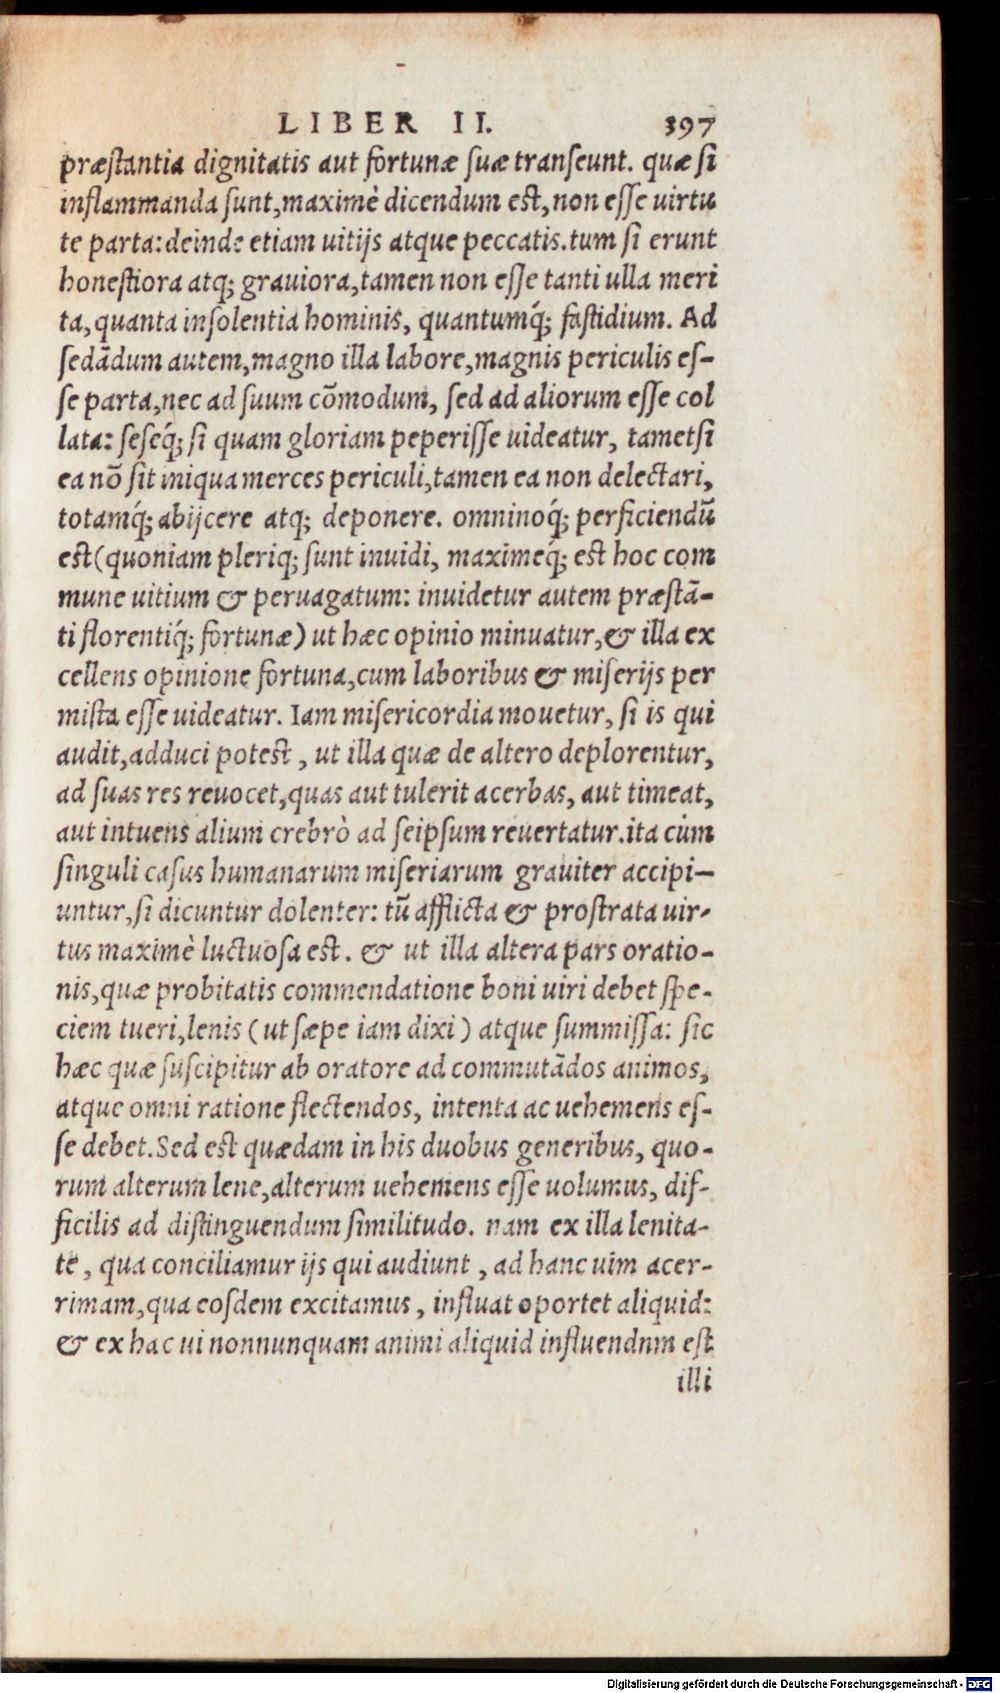 LIBER II. 397
præstantia dignitatis aut fortunæ suæ transeunt. quæ si
inflammanda sunt,maximè dicendum est,non esse uirtu
te parta:deinde etiam uitijs atque peccatis.tum si erunt
honestiora atq; grauiora,tamen non esse tanti ulla meri
ta,quanta insolentia hominis, quantumq́; fastidium. Ad
sedãdum autem,magno illa labore,magnis periculis es-
se parta,nec ad suum cõmodum, sed ad aliorum esse col
lata: seseq́; si quam gloriam peperisse uideatur, tametsi
ea nõ sit iniqua merces periculi,tamen ea non delectari,
totamq́; abijcere atq; deponere. omninoq́; perficiendũ
est(quoniam pleriq; sunt inuidi, maximeq́; est hoc com
mune uitium & peruagatum: inuidetur autem præstã-
ti florentiq́; fortunæ) ut hæc opinio minuatur,& illa ex
cellens opinione fortuna,cum laboribus & miserijs per
mista esse uideatur. Iam misericordia mouetur, si is qui
audit,adduci potest , ut illa quæ de altero deplorentur,
ad suas res reuocet,quas aut tulerit acerbas, aut timeat,
aut intuens alium crebrò ad seipsum reuertatur.ita cùm
singuli casus humanarum miseriarum grauiter accipi-
untur,si dicuntur dolenter: tũ afflicta & prostrata uir-
tus maximè luctuosa est. & ut illa altera pars oratio-
nis,quæ probitatis commendatione boni uiri debet spe-
ciem tueri,lenis (ut sæpe iam dixi) atque summissa: sic
hæc quæ suscipitur ab oratore ad commutãdos animos,
atque omni ratione flectendos, intenta ac uehemens es-
se debet.Sed est quædam in his duobus generibus, quo-
rum alterum lene,alterum uehemens esse uolumus, dif-
ficilis ad distinguendum similitudo. nam ex illa lenita-
te , qua conciliamur ijs qui audiunt , ad hanc uim acer-
rimam,qua eosdem excitamus , influat oportet aliquid:
& ex hac ui nonnunquam animi aliquid influendnm est
illi
Digitalisierung gefördert durch die Deutsche Forschungsgemeinschaft - DFG